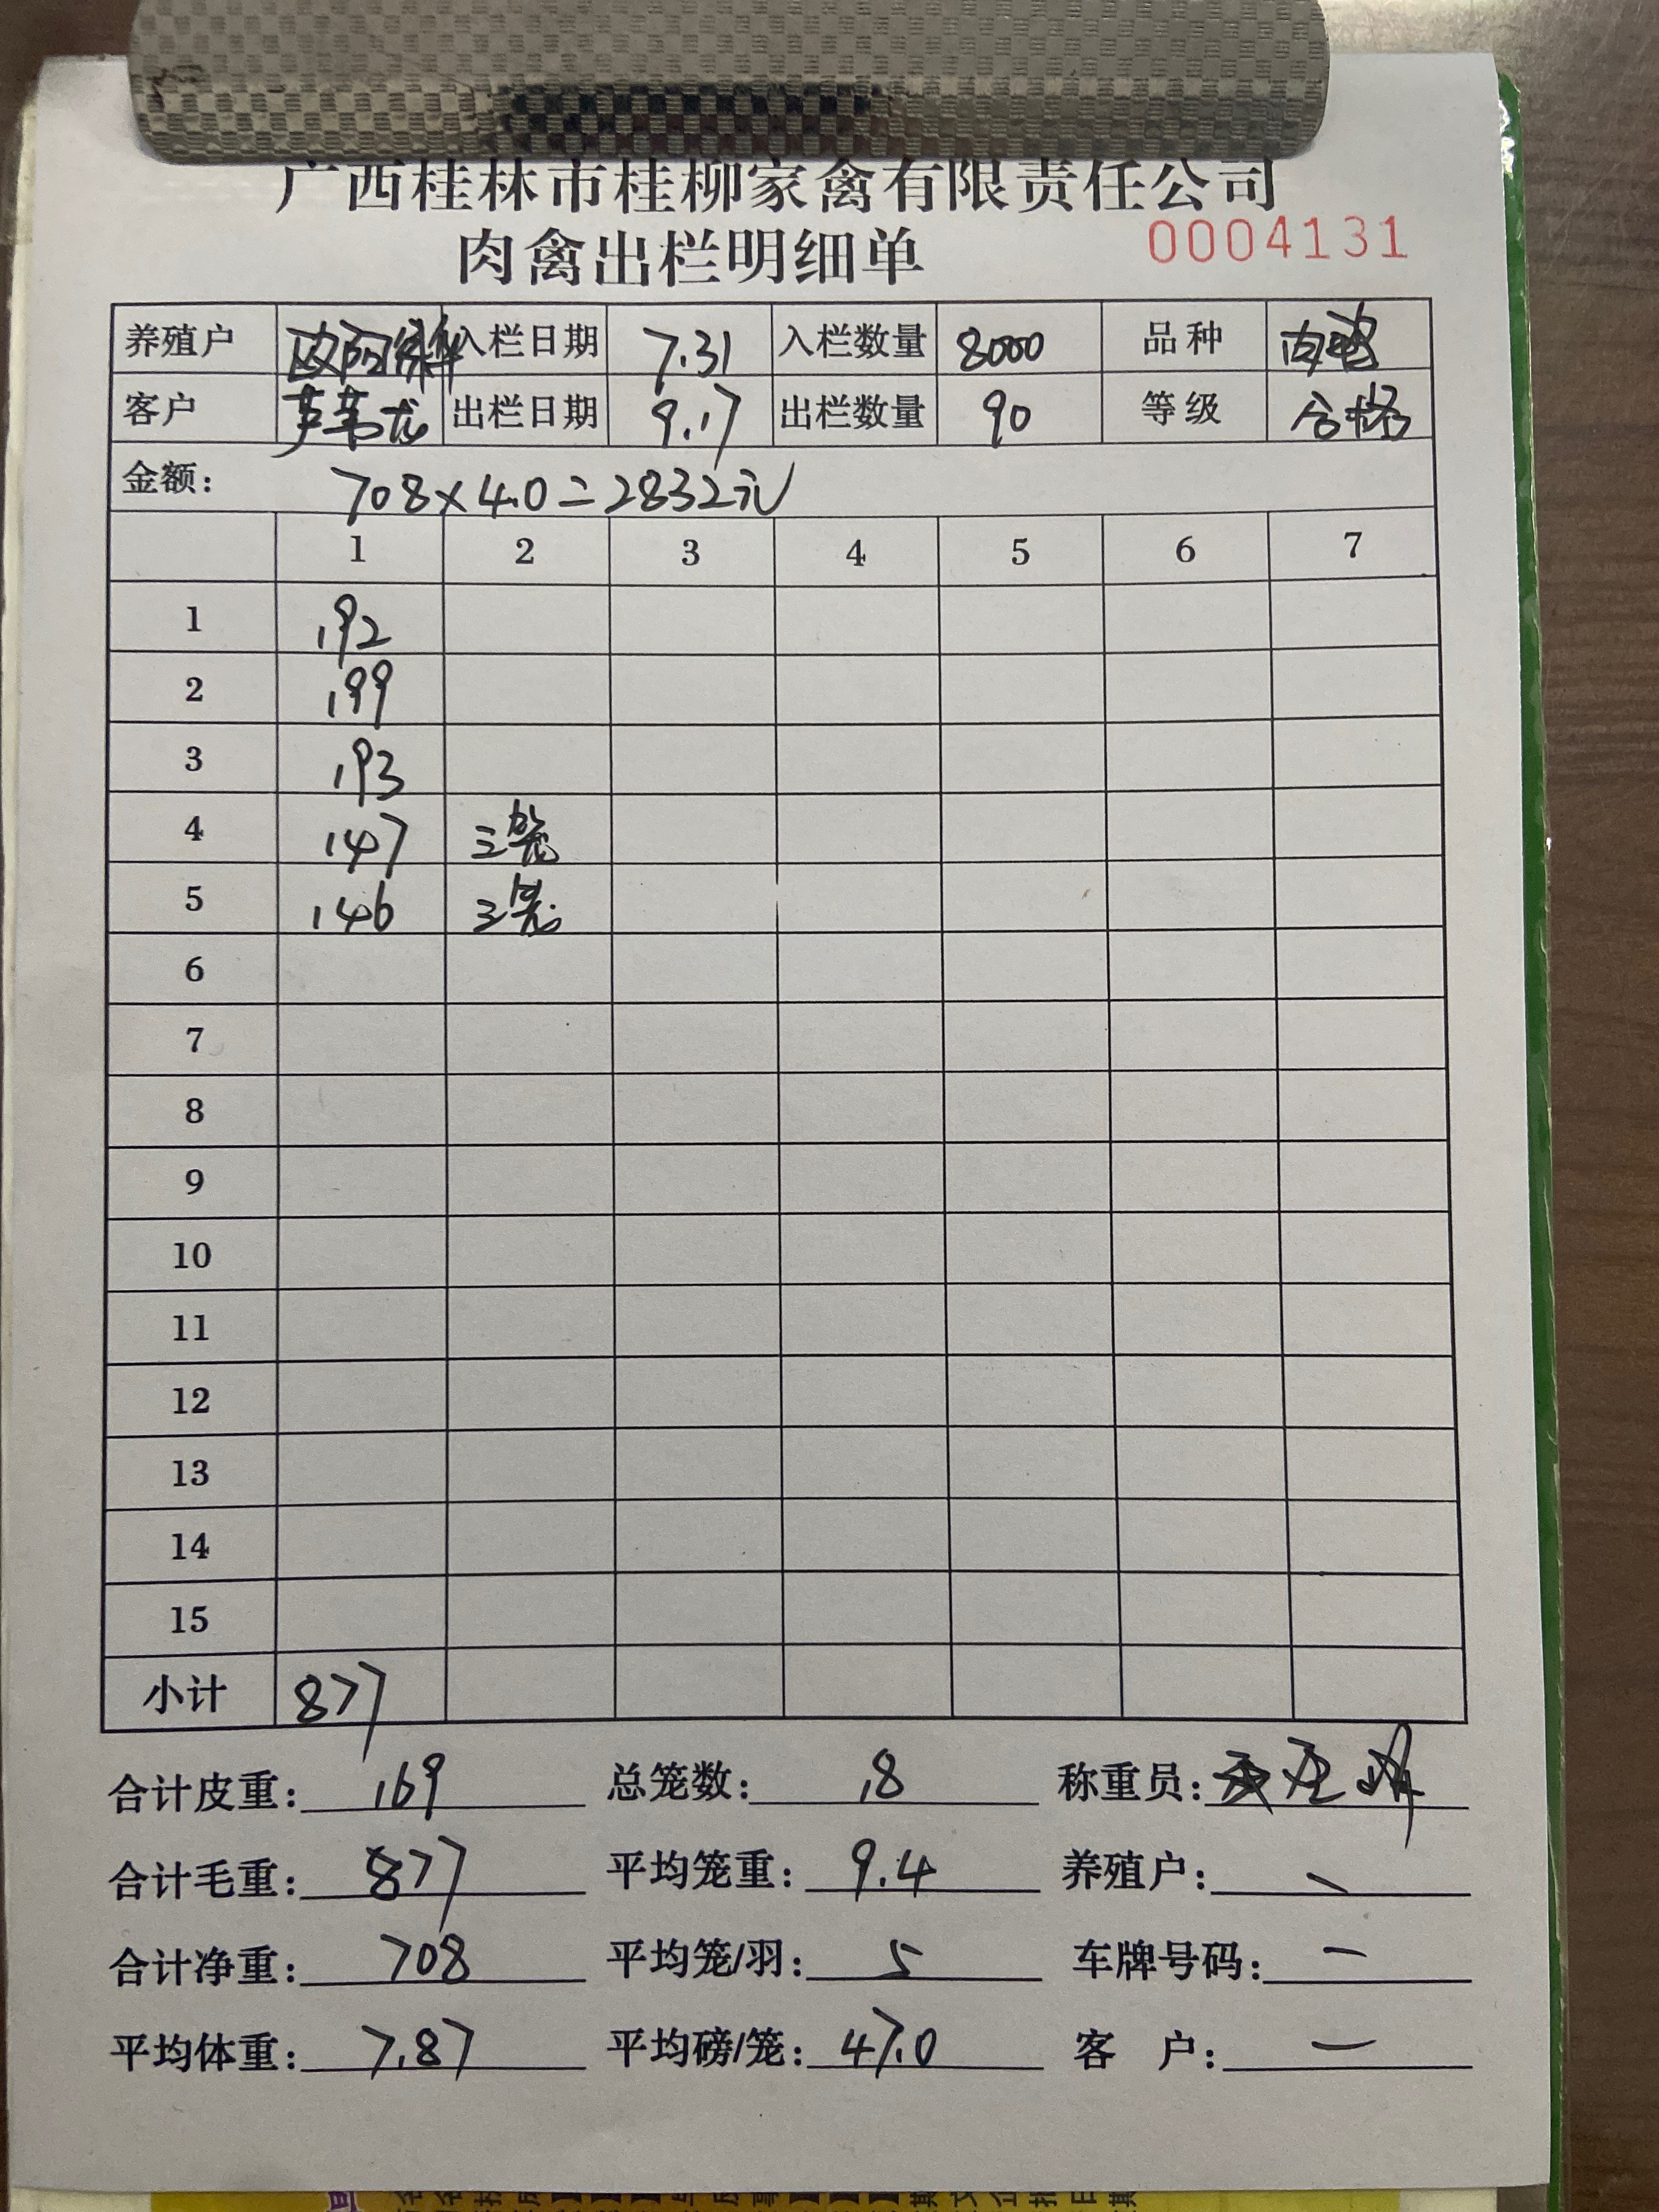 广西桂林市桂柳家禽有限责任公司
肉禽出栏明细单 0004131
养殖户 欧阳 入栏日期 7.31 入栏数量 8000 品种 肉鸭
客户 出栏日期 9.17 出栏数量 90 等级 合格
金额: 708×4.0=2832元
1 2 3 4 5 6 7
1 192
2 199
3 193
4 147 三笼
5 146 三笼
6
7
8
9
10
11
12
13
14
15
小计 877
合计皮重: 169 总笼数: 18 称重员:
合计毛重: 877 平均笼重: 9.4 养殖户: 一
合计净重: 708 平均笼/羽: 5 车牌号码: 一
平均体重: 7.87 平均磅/笼: 47.0 客 户: 一